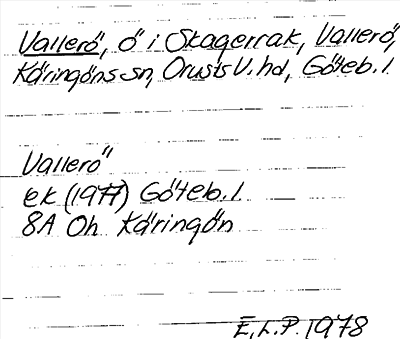 Vallerö, ö i Skagerrak, Vallerö,
Käringöns sn, Orusts V. hd, Göteb. l.
Vallerö
ek (1977) Göteb. l.
8A Oh Käringön
E. L. P. 1978